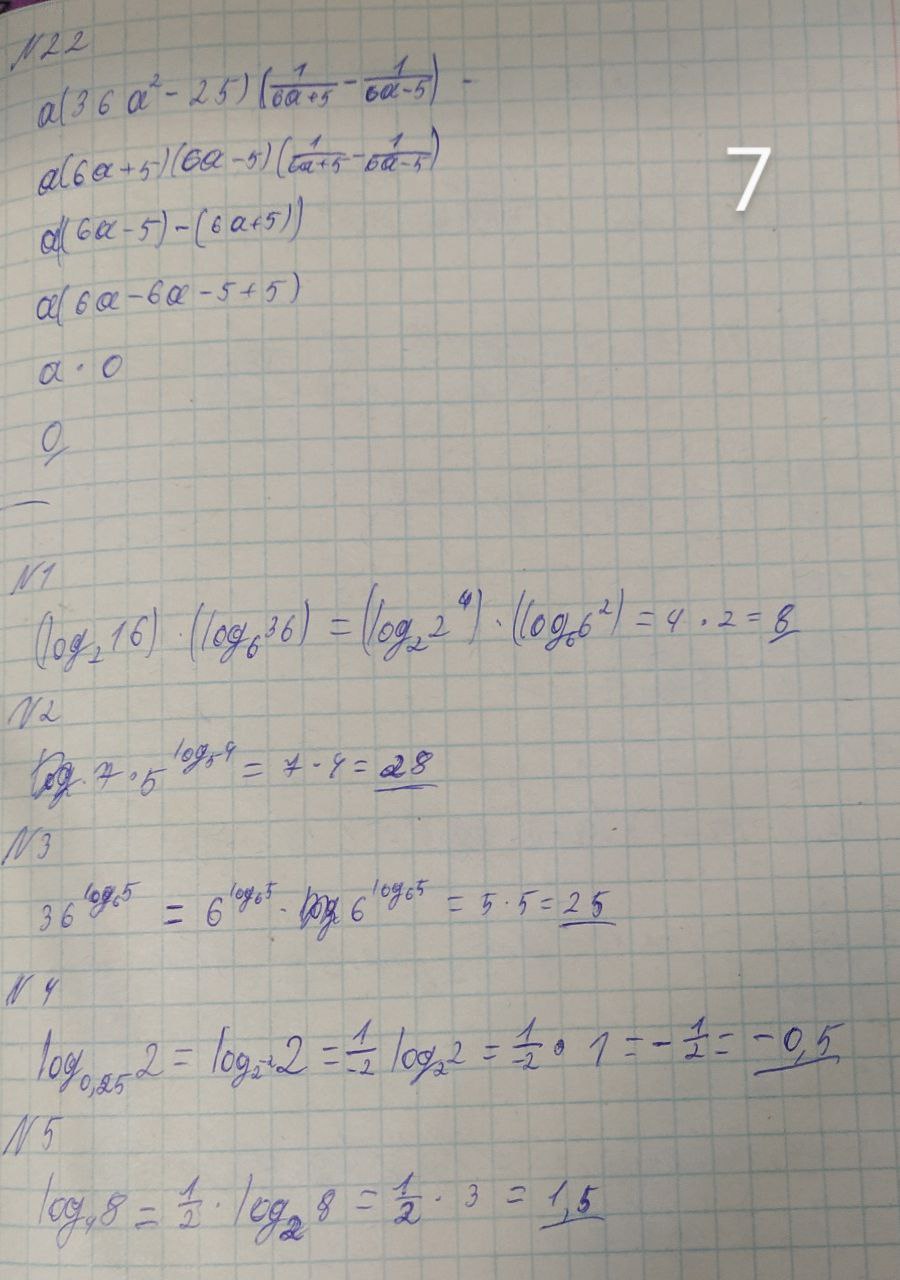 N22
a(36a² - 25)(1/(6a+5) - 1/(6a-5)) -
a(6a+5)(6a-5)(1/(6a+5) - 1/(6a-5))
7
a((6a-5)-(6a+5))
a(6a-6a-5+5)
a · 0
0
N1
(log₂16) · (log₆36) = (log₂2⁴) · (log₆6²) = 4 · 2 = 8
N2
7 · 5^(log₅4) = 7 · 4 = 28
N3
36^(log₆5) = 6^(log₆5) · 6^(log₆5) = 5 · 5 = 25
N4
log₀,₂₅2 = log₂⁻²2 = 1/-2 log₂2 = 1/-2 · 1 = -1/2 = -0,5
N5
log₄8 = 1/2 · log₂8 = 1/2 · 3 = 1,5